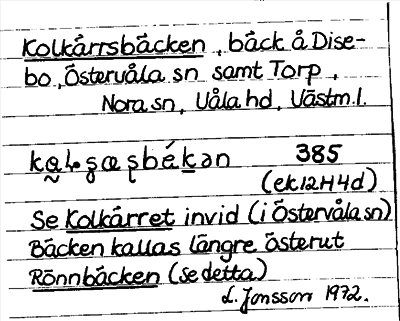 Kolkärrsbäcken, bäck å Dise-
bo, Östervåla sn samt Torp,
Nora sn, Våla hd, Västm.l.
385
(ek12H4d)
Se Kolkärret invid (i Östervåla sn)
Bäcken kallas längre österut
Rönnbäcken (se detta)
L. Jonsson 1972.